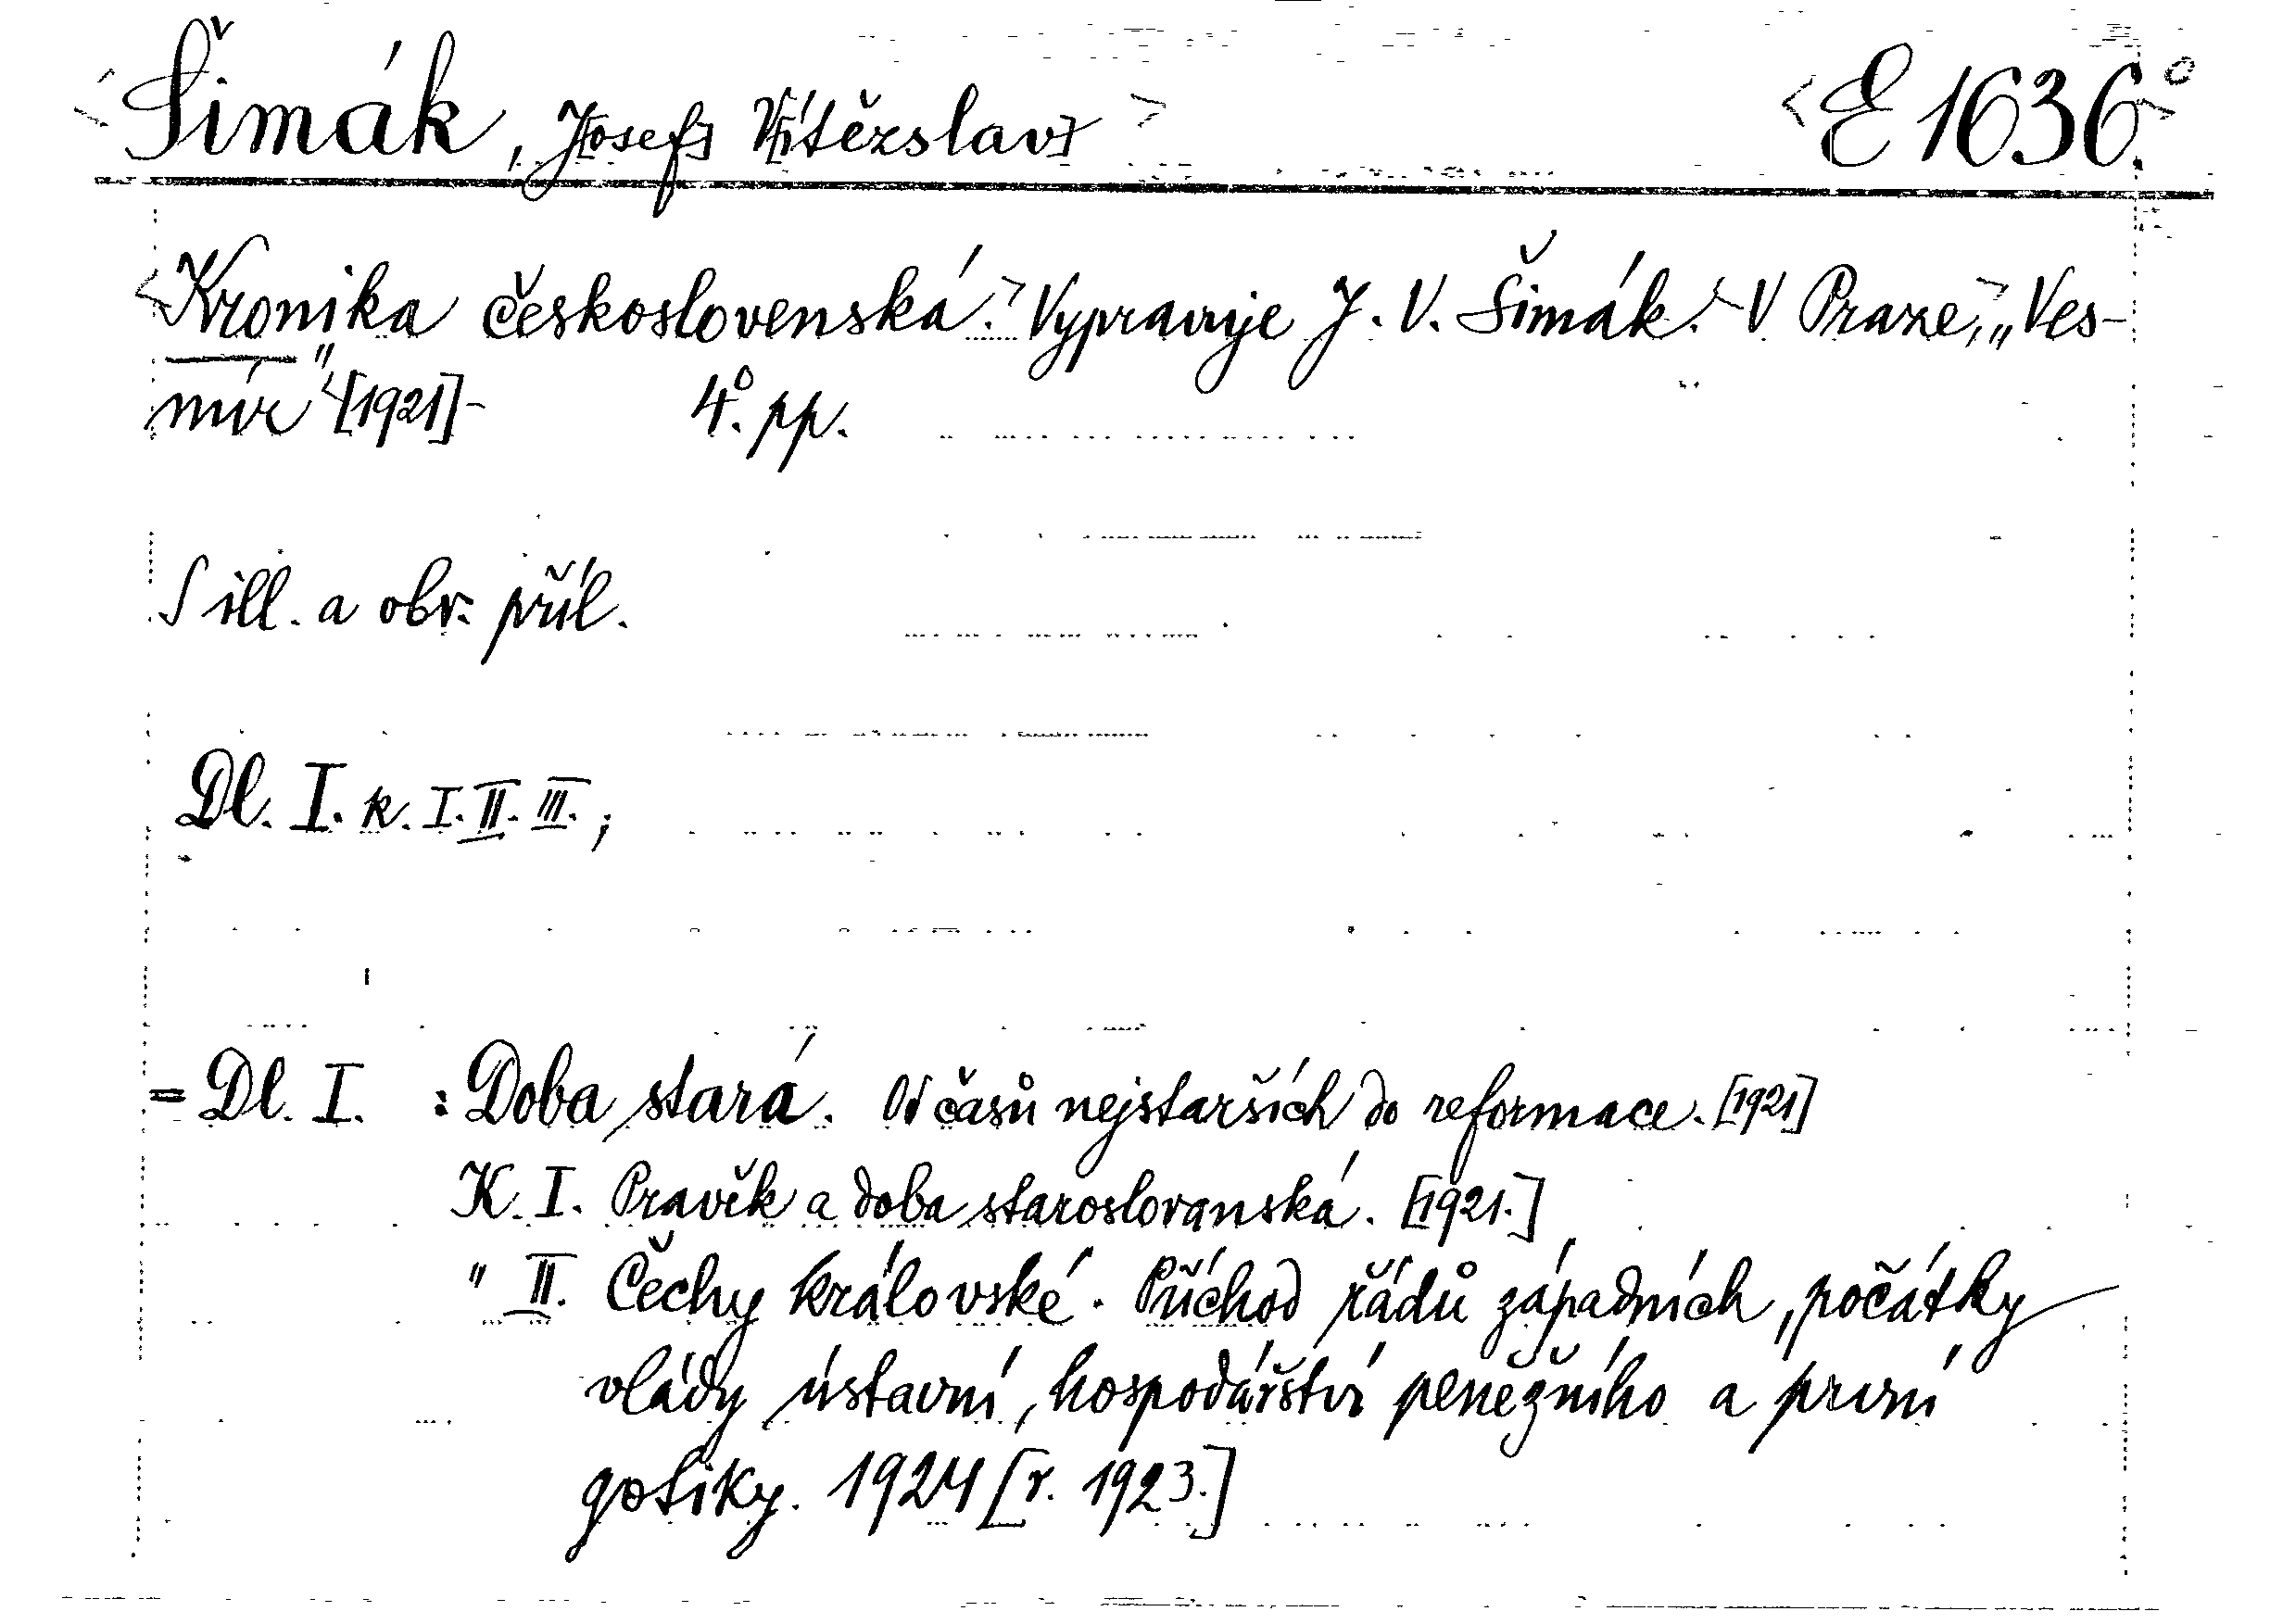 <Šimák, J[osef] V[ítězslav]> <E 1636.°>
<Kronika československá.> Vypravuje J. V. Šimák. <V Praze,> „Ves-
mír“ <[1921]- 4°. pp.
S ill. a obr. příl.
Dl. I. k. I. II. III.;
= Dl. I. : Doba stará. Od časů nejstarších do reformace. [1921]
K. I. Pravěk a doba staroslovanská. [1921.]
" II. Čechy královské. Příchod řádů západních, počátky
vlády ústavní, hospodářství peněžního a první
gotiky. 1924 [r. 1923.]